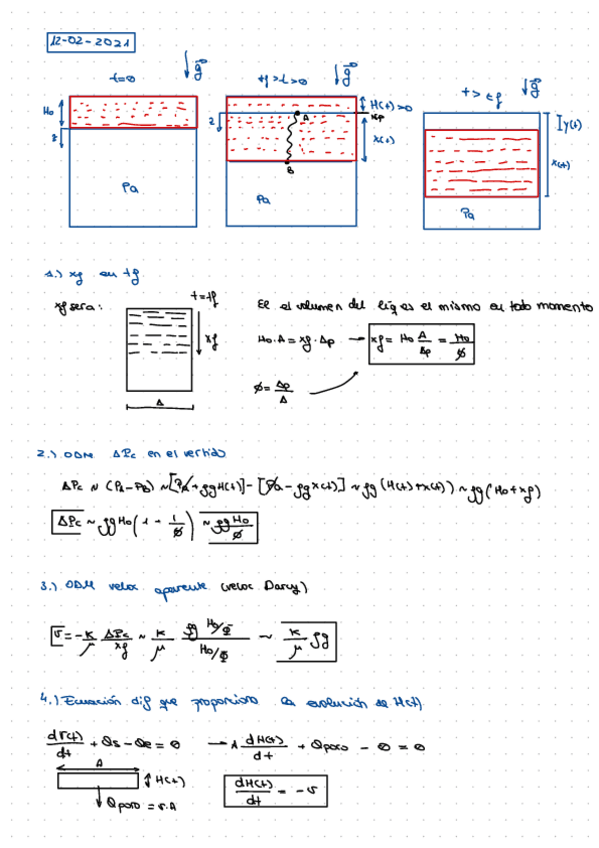 12-02-2021
t=0
g
tf>t>0
g
t>tf
g
H0
z
Pa
z
A
B
H(t)>0
x(t)
Pa
y(t)
x(t)
Pa
1.) xf en tf
xf sera:
t=tf
xf
A
El el volumen del liq es el mismo en todo momento
H0·A = xf·Ap → xf = H0 A/Ap = H0/ϕ
ϕ = Ap/A
2.) ODM ΔPc en el vertido
ΔPc ~ (PA-PB) ~ [Pa + ρgH(t)] - [Pa - ρgx(t)] ~ ρg(H(t)+x(t)) ~ ρg(H0+xf)
ΔPc ~ ρgH0(1 + 1/ϕ) ~ ρgH0/ϕ
3.) ODM veloc aparente (veloc Darcy)
v = -K/μ ΔPc/xf ~ K/μ ρg H0/ϕ / H0/ϕ ~ K/μ ρg
4.) Ecuación dif que proporciona la evolución de H(t)
dV(t)/dt + Qs - Qe = 0 → A dH(t)/dt + Qporo - 0 = 0
A
H(t)
Qporo = v·A
dH(t)/dt = -v